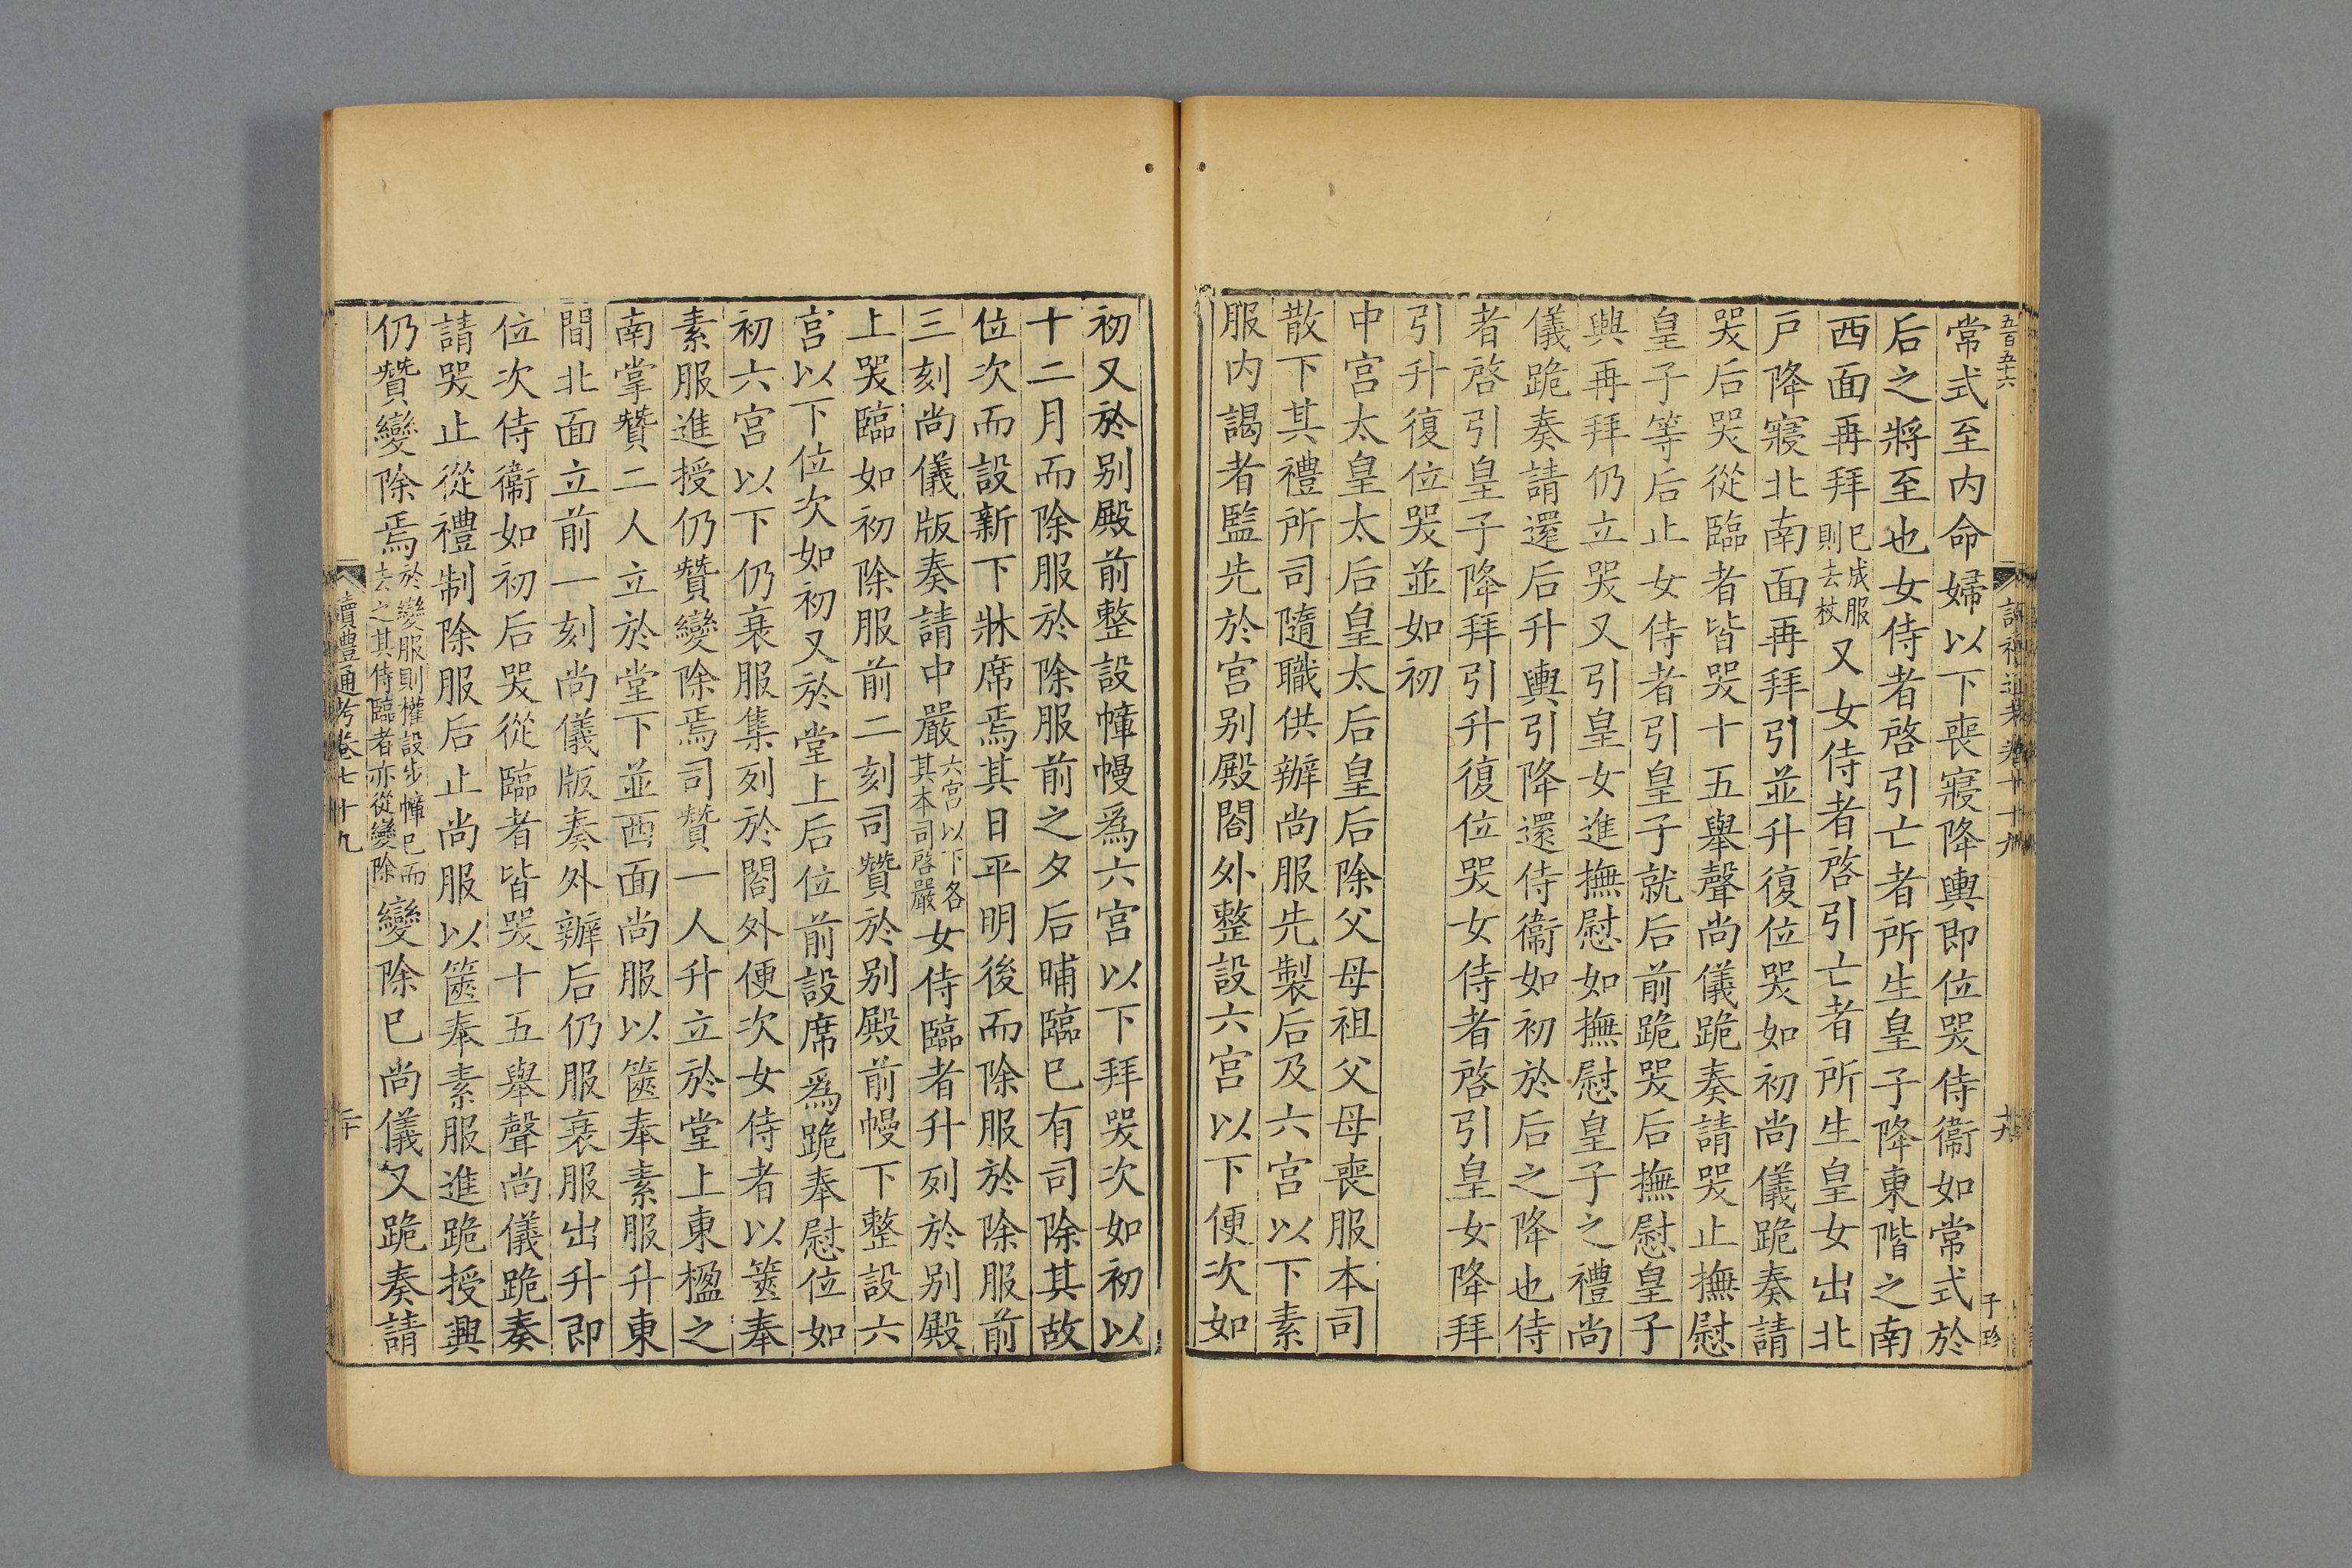 五百五十六
讀禮通考卷七十九
十九
子珍
常式至内命婦以下喪寢降輿即位哭侍衞如常式於
后之將至也女侍者啓引亡者所生皇子降東階之南
西面再拜已成服則去杖又女侍者啓引亡者所生皇女出北
戸降寢北南面再拜引並升復位哭如初尚儀跪奏請
哭后哭從臨者皆哭十五舉聲尚儀跪奏請哭止撫慰
皇子等后止女侍者引皇子就后前跪哭后撫慰皇子
興再拜仍立哭又引皇女進撫慰如撫慰皇子之禮尚
儀跪奏請還后升輿引降還侍衞如初於后之降也侍
者啓引皇子降拜引升復位哭女侍者啓引皇女降拜
引升復位哭並如初
中宫太皇太后皇太后皇后除父母祖父母喪服本司
散下其禮所司隨職供辦尚服先製后及六宫以下素
服内謁者監先於宫别殿閤外整設六宫以下便次如
初又於别殿前整設幛幔爲六宫以下拜哭次如初以
十二月而除服於除服前之夕后晡臨已有司除其故
位次而設新下牀席焉其日平明後而除服於除服前
三刻尚儀版奏請中嚴六宫以下各其本司啓嚴女侍臨者升列於别殿
上哭臨如初除服前二刻司贊於别殿前幔下整設六
宫以下位次如初又於堂上后位前設席爲跪奉慰位如
初六宫以下仍衰服集列於閤外便次女侍者以篋奉
素服進授仍贊變除焉司贊一人升立於堂上東楹之
南掌贊二人立於堂下並西面尚服以篋奉素服升東
間北面立前一刻尚儀版奏外辦后仍服衰服出升即
位次侍衞如初后哭從臨者皆哭十五舉聲尚儀跪奏
請哭止從禮制除服后止尚服以篋奉素服進跪授興
仍贊變除焉於變服則權設步幛已而去之其侍臨者亦從變除變除已尚儀又跪奏請
讀禮通考卷七十九
二十